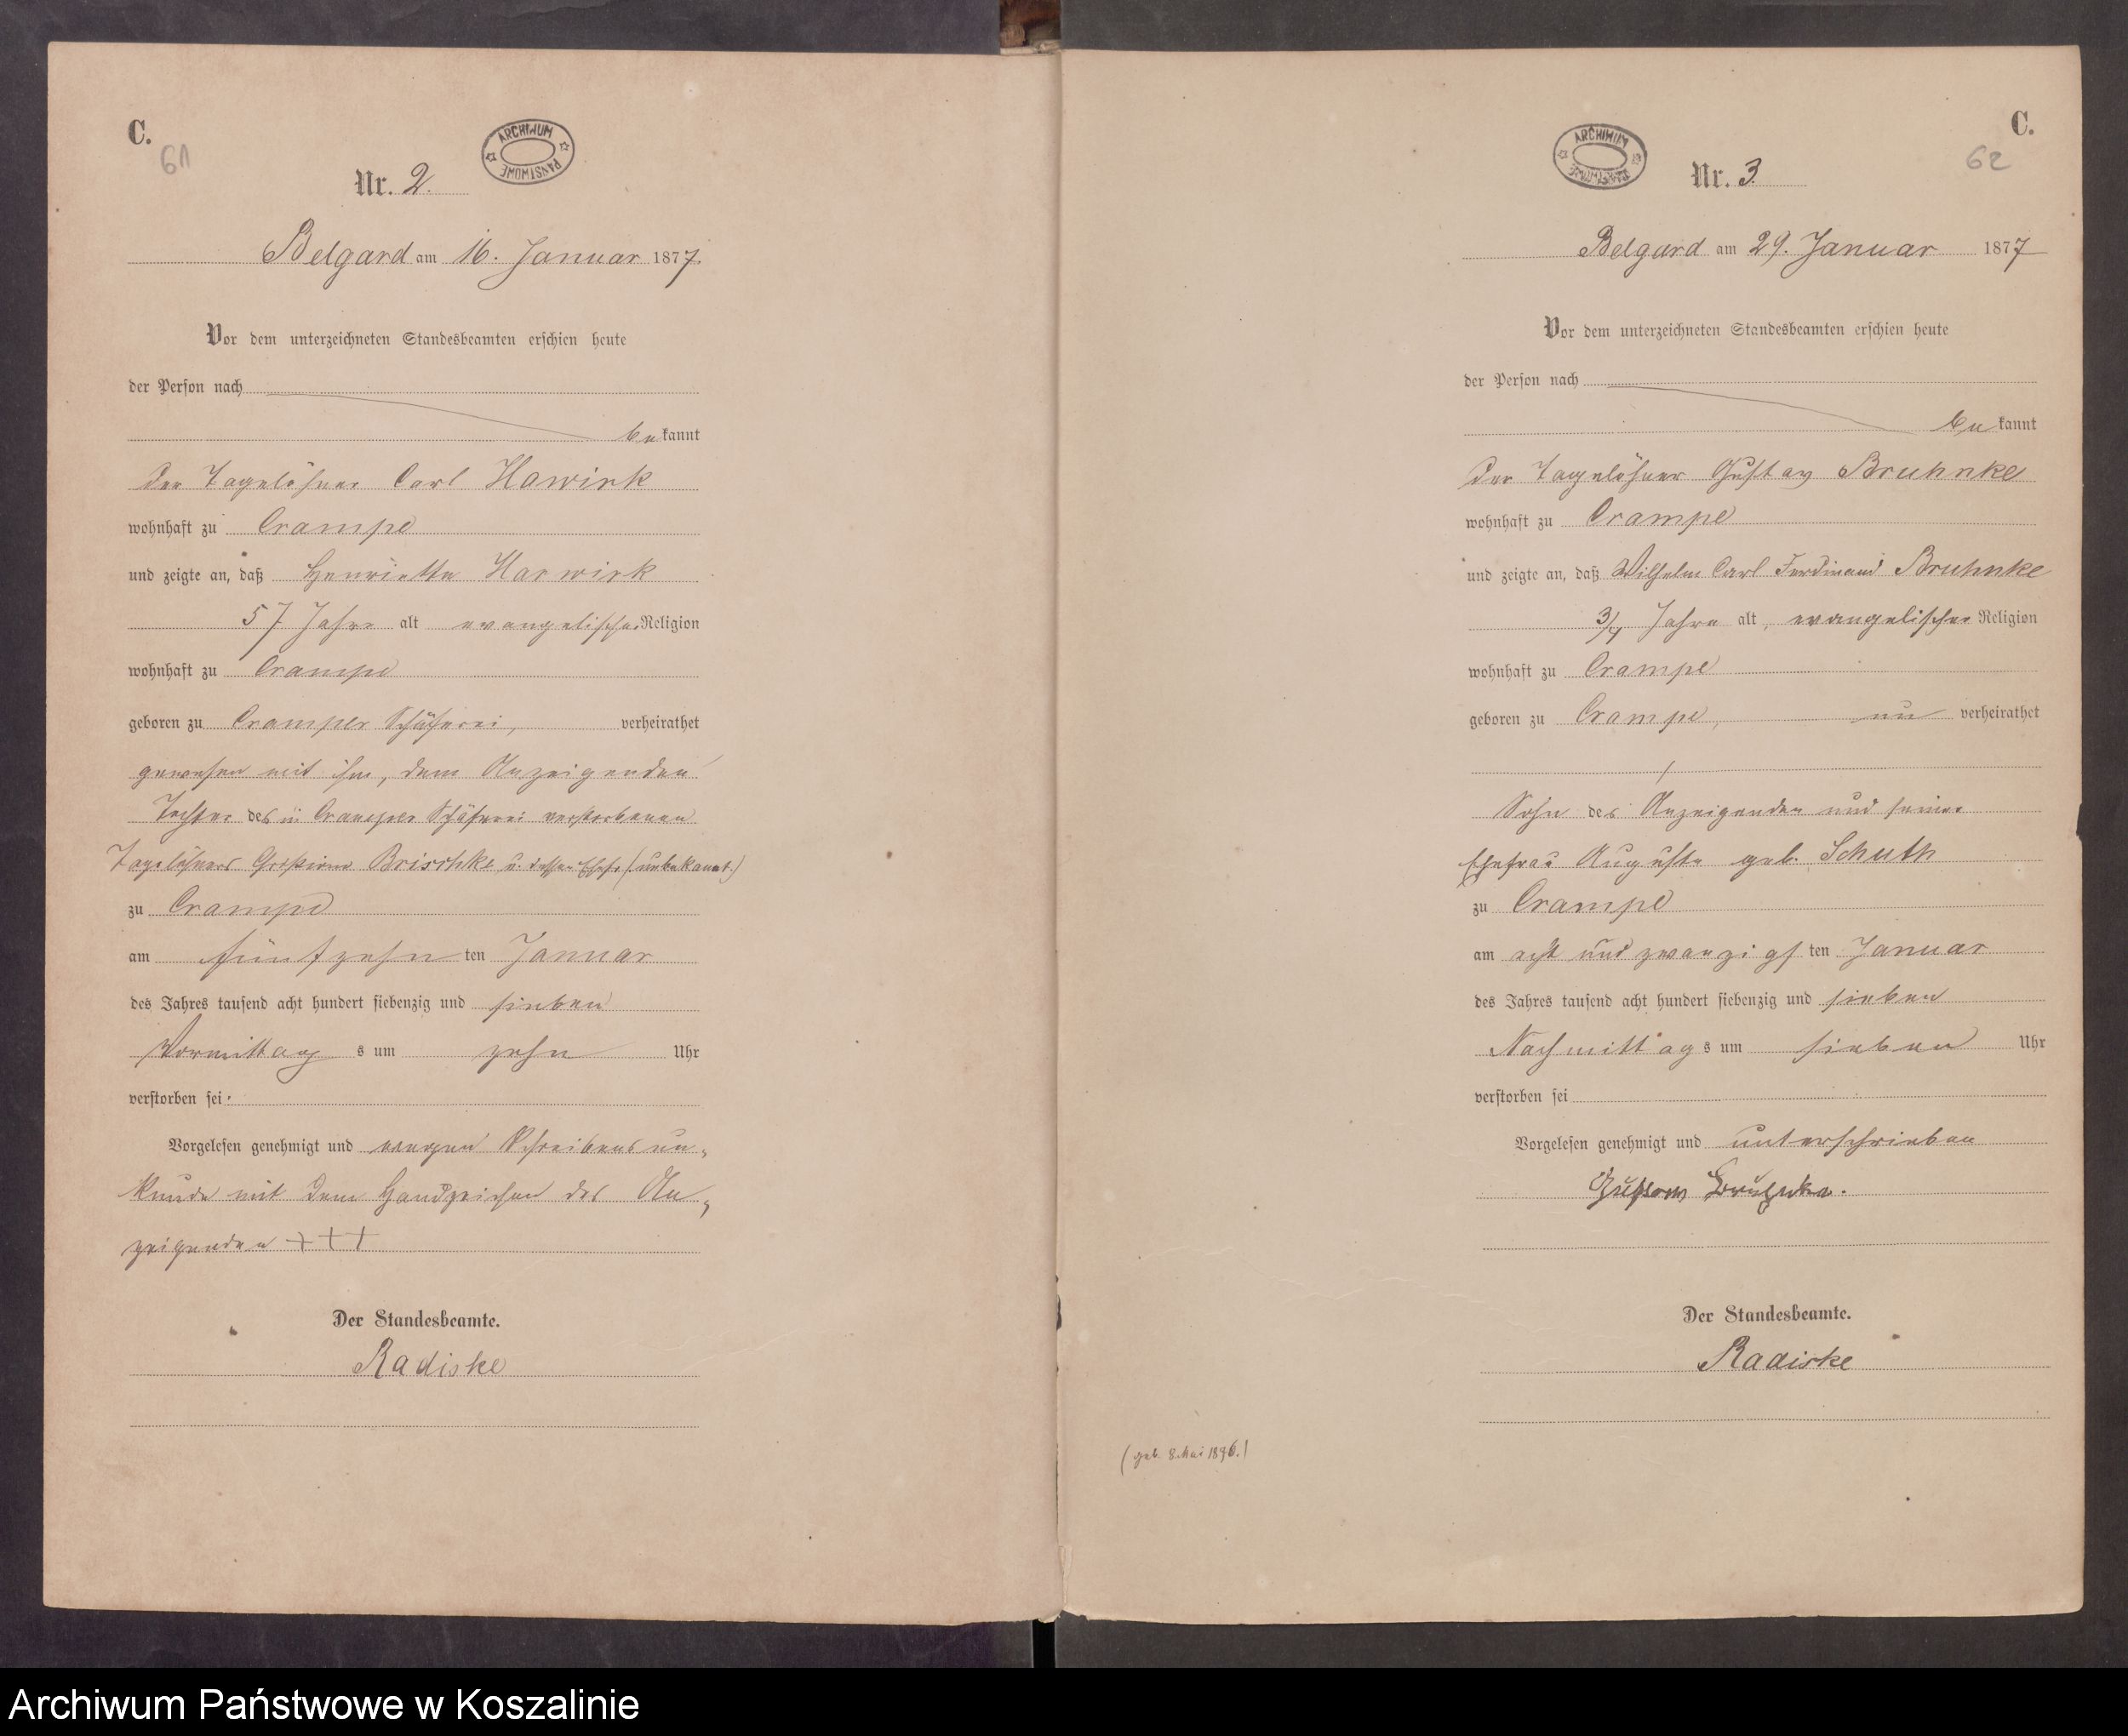 C.
61
ARCHIWUM PAŃSTWOWE
Nr. 2.
Belgard am 16. Januar 1877.
Vor dem unterzeichneten Standesbeamten erschien heute
der Person nach
bekannt
der Tagelöhner Carl Hawirk
wohnhaft zu Crampe
und zeigte an, daß Henriette Harwirk
57 Jahre alt evangelischer Religion
wohnhaft zu Crampe
geboren zu Cramper Schäferei, verheirathet
gewesen mit ihm, dem Anzeigenden
Tochter des in Cramper Schäferei verstorbenen
Tagelöhners Brischke u. dessen Ehefr. (unbekannt.)
zu Crampe
am fünfzehn ten Januar
des Jahres tausend acht hundert siebenzig und sieben
Vormittag s um zehn Uhr
verstorben sei.
Vorgelesen genehmigt und wegen Schreibensun-
kunde mit dem Handzeichen des An-
zeigenden +++
Der Standesbeamte.
Radiske
C.
62
ARCHIWUM PAŃSTWOWE
Nr. 3.
Belgard am 29. Januar 1877
Vor dem unterzeichneten Standesbeamten erschien heute
der Person nach
bekannt
der Tagelöhner Gustav Bruhnke
wohnhaft zu Crampe
und zeigte an, daß Wilhelm Carl Ferdinand Bruhnke
3/4 Jahre alt, evangelischer Religion
wohnhaft zu Crampe
geboren zu Crampe, un verheirathet
Sohn des Anzeigenden und seiner
Ehefrau Auguste geb. Schuth
zu Crampe
am acht und zwanzigs ten Januar
des Jahres tausend acht hundert siebenzig und sieben
Nachmittag s um sieben Uhr
verstorben sei
Vorgelesen genehmigt und unterschrieben
Gustav Bruhnke.
Der Standesbeamte.
Radiske
(geb. 8. Mai 1876.)
Archiwum Państwowe w Koszalinie